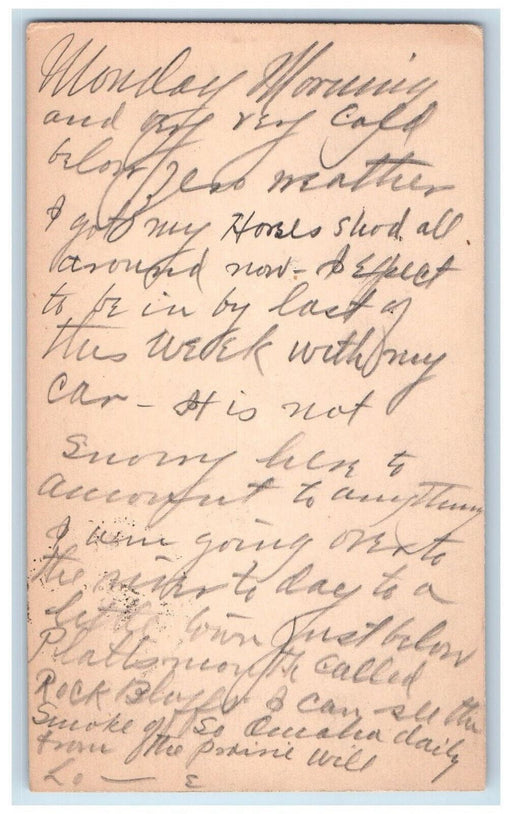 Monday Morning
and very very cold
below Zero weather
I got my Horses Shod all
around now - I Expect
to be in by last of
this WEEK with my
car - It is not
Snowy here to
amount to anything
I am going over to
the river to day to a
little town just below
Plattsmouth called
Rock Bluffs I can see the
Smoke of So Omaha daily
from the prairie Will